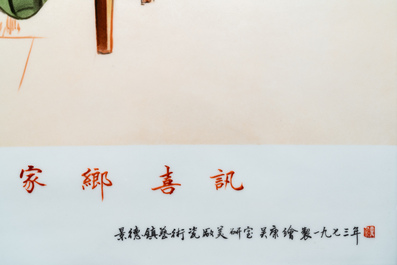 家鄉喜訊
景德鎮藝術瓷廠美研室吴康繪製一九七三年